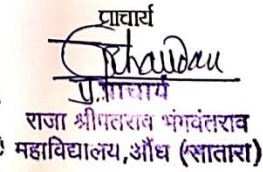 प्राचार्य
प्राचार्य
राजा श्रीपतराव भगवंतराव
महाविद्यालय,औंध (सातारा)